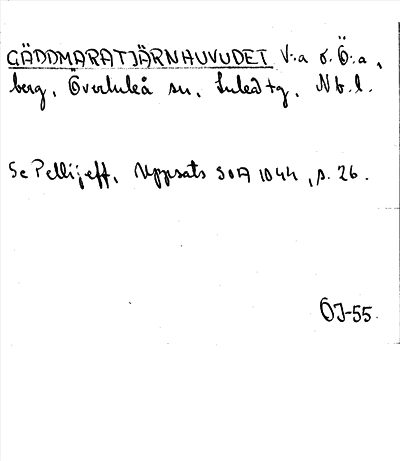 GÄDDMÄRATJÄRNHUVUDET V:a o. Ö:a,
berg, Överluleå sn, Luleå tg, Nb.l.
Se Pellijeff, Uppsats SOA 1044, s. 26.
ÖJ-55.